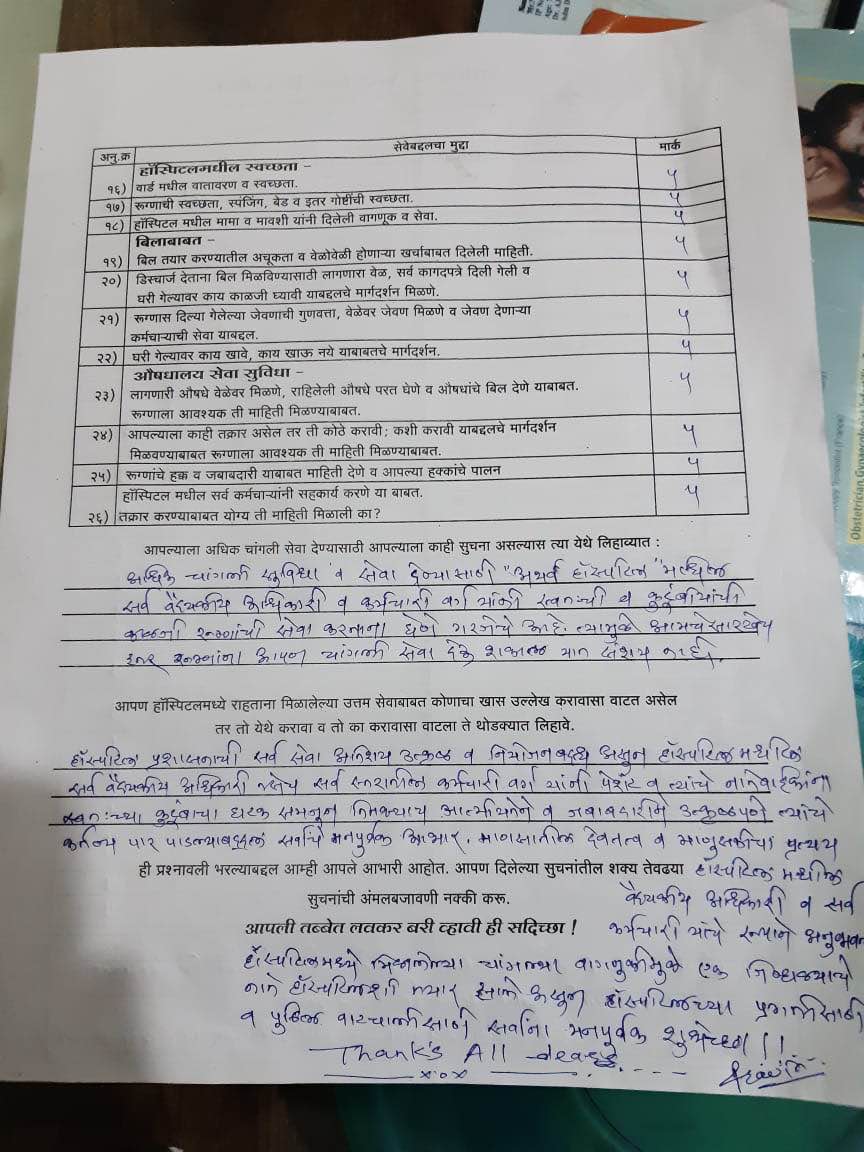 अनु.क्र सेवेबद्दलचा मुद्दा मार्क
हॉस्पिटलमधील स्वच्छता –
१६) वार्ड मधील वातावरण व स्वच्छता. ५
१७) रूग्णाची स्वच्छता, स्पंजिंग, बेड व इतर गोष्टींची स्वच्छता. ५
१८) हॉस्पिटल मधील मामा व मावशी यांनी दिलेली वागणूक व सेवा. ५
बिलाबाबत –
१९) बिल तयार करण्यातील अचूकता व वेळोवेळी होणाऱ्या खर्चाबाबत दिलेली माहिती. ५
२०) डिस्चार्ज देताना बिल मिळविण्यासाठी लागणारा वेळ, सर्व कागदपत्रे दिली गेली व ५
घरी गेल्यावर काय काळजी घ्यावी याबद्दलचे मार्गदर्शन मिळणे.
२१) रूग्णास दिल्या गेलेल्या जेवणाची गुणवत्ता, वेळेवर जेवण मिळणे व जेवण देणाऱ्या ५
कर्मचाऱ्याची सेवा याबद्दल.
२२) घरी गेल्यावर काय खावे, काय खाऊ नये याबाबतचे मार्गदर्शन. ५
औषधालय सेवा सुविधा –
२३) लागणारी औषधे वेळेवर मिळणे, राहिलेली औषधे परत घेणे व औषधांचे बिल देणे याबाबत. ५
रूग्णाला आवश्यक ती माहिती मिळण्याबाबत.
२४) आपल्याला काही तक्रार असेल तर ती कोठे करावी; कशी करावी याबद्दलचे मार्गदर्शन ५
मिळवण्याबाबत रूग्णाला आवश्यक ती माहिती मिळण्याबाबत.
२५) रूग्णांचे हक्क व जबाबदारी याबाबत माहिती देणे व आपल्या हक्कांचे पालन ५
हॉस्पिटल मधील सर्व कर्मचाऱ्यांनी सहकार्य करणे या बाबत. ५
२६) तक्रार करण्याबाबत योग्य ती माहिती मिळाली का?
आपल्याला अधिक चांगली सेवा देण्यासाठी आपल्याला काही सुचना असल्यास त्या येथे लिहाव्यात :
अधिक चांगली सुविधा व सेवा देण्यासाठी "अथर्व हॉस्पिटल" मधील
सर्व वैद्यकीय अधिकारी व कर्मचारी वर्ग यांनी स्वतःची व कुटुंबीयांची
काळजी रुग्णांची सेवा करताना घेणे गरजेचे आहे. त्यामुळे आमचेसारखेच
इतर रुग्णांना आपण चांगली सेवा देऊ शकाल यात संशय नाही.
आपण हॉस्पिटलमध्ये राहताना मिळालेल्या उत्तम सेवाबाबत कोणाचा खास उल्लेख करावासा वाटत असेल
तर तो येथे करावा व तो का करावासा वाटला ते थोडक्यात लिहावे.
हॉस्पिटल प्रशासनाची सर्व सेवा अतिशय उत्कृष्ट व नियोजनबध्द असून हॉस्पिटल मधील
सर्व वैद्यकीय अधिकारी तसेच सर्व स्तरातील कर्मचारी वर्ग यांनी पेशंट व त्यांचे नातेवाईकांना
स्वतःच्या कुटुंबाचा घटक समजून आत्मीयतेने व जबाबदारीने उत्कृष्टपणे त्यांचे
कर्तव्य पार पाडल्याबद्दल सर्वांचे मनपूर्वक आभार. माणसातील देवतत्व व माणुसकीचा प्रत्यय
ही प्रश्नावली भरल्याबद्दल आम्ही आपले आभारी आहोत. आपण दिलेल्या सुचनांतील शक्य तेवढया हॉस्पिटल मधील
सुचनांची अंमलबजावणी नक्की करू. वैद्यकीय अधिकारी व सर्व
आपली तब्बेत लवकर बरी व्हावी ही सदिच्छा ! कर्मचारी यांचे रूपाने
हॉस्पिटलमध्ये मिळालेल्या चांगल्या वागणुकीमुळे एक जिव्हाळ्याचे
नाते हॉस्पिटलशी तयार झाले असून हॉस्पिटलच्या प्रगतीसाठी
व पुढिल वाटचालीसाठी सर्वांना मनपूर्वक शुभेच्छा !!
Thank's All
xox